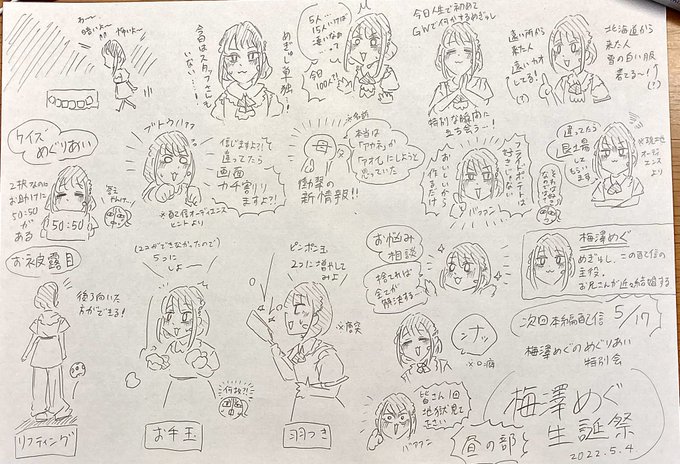 わ〜
暗いよ〜
怖いよ〜
めぎゅし単独…!
今日はスタッフさんも
いない…!
5人…
15人いけば
凄いなぁ…
って
今日
100人?!
今日人生で初めて
GWで何かするめぎゅし
特別な瞬間に
立ち会う…!
遠い所から
来た人
遠いカオ
してる!
(?)
北海道から
来た人
雪の白い服
着てる〜!
(?)
クイズ
めぐりあい
2択なのに
お助けに
50:50
がある
50:50
信じますよ?!
違ってたら
画面
カチ割り
ますよ?!
※配信オーディエンス
ヒントより
母
※名前
本当は
「アカネ」か
「アオイ」にしようと
思っていた
衝撃の
新情報!!
フライドポテトは
好きじゃない
おいしいから
作るだけ
違ってたら
退場
してもら
います
※現地オーディ
エンス
より
お披露目
後ろ向いた
方ができる!
リフティング
(2コができなかったので)
5つに
しよ〜
何故?!
お手玉
ピンポン玉
2つに増やして
みよ
※唐突
羽つき
お悩み
相談
捨てれば
全てが
解決する…
シナッ
※口癖
皆さん1回
地獄見て
下さい
梅澤めぐ
めぎゅし。この配信の
主役。
お兄さんが近々結婚する
次回本編配信 5/17
梅澤めぐのめぐりあい
特別会
梅澤めぐ
生誕祭
昼の部
2022.5.4